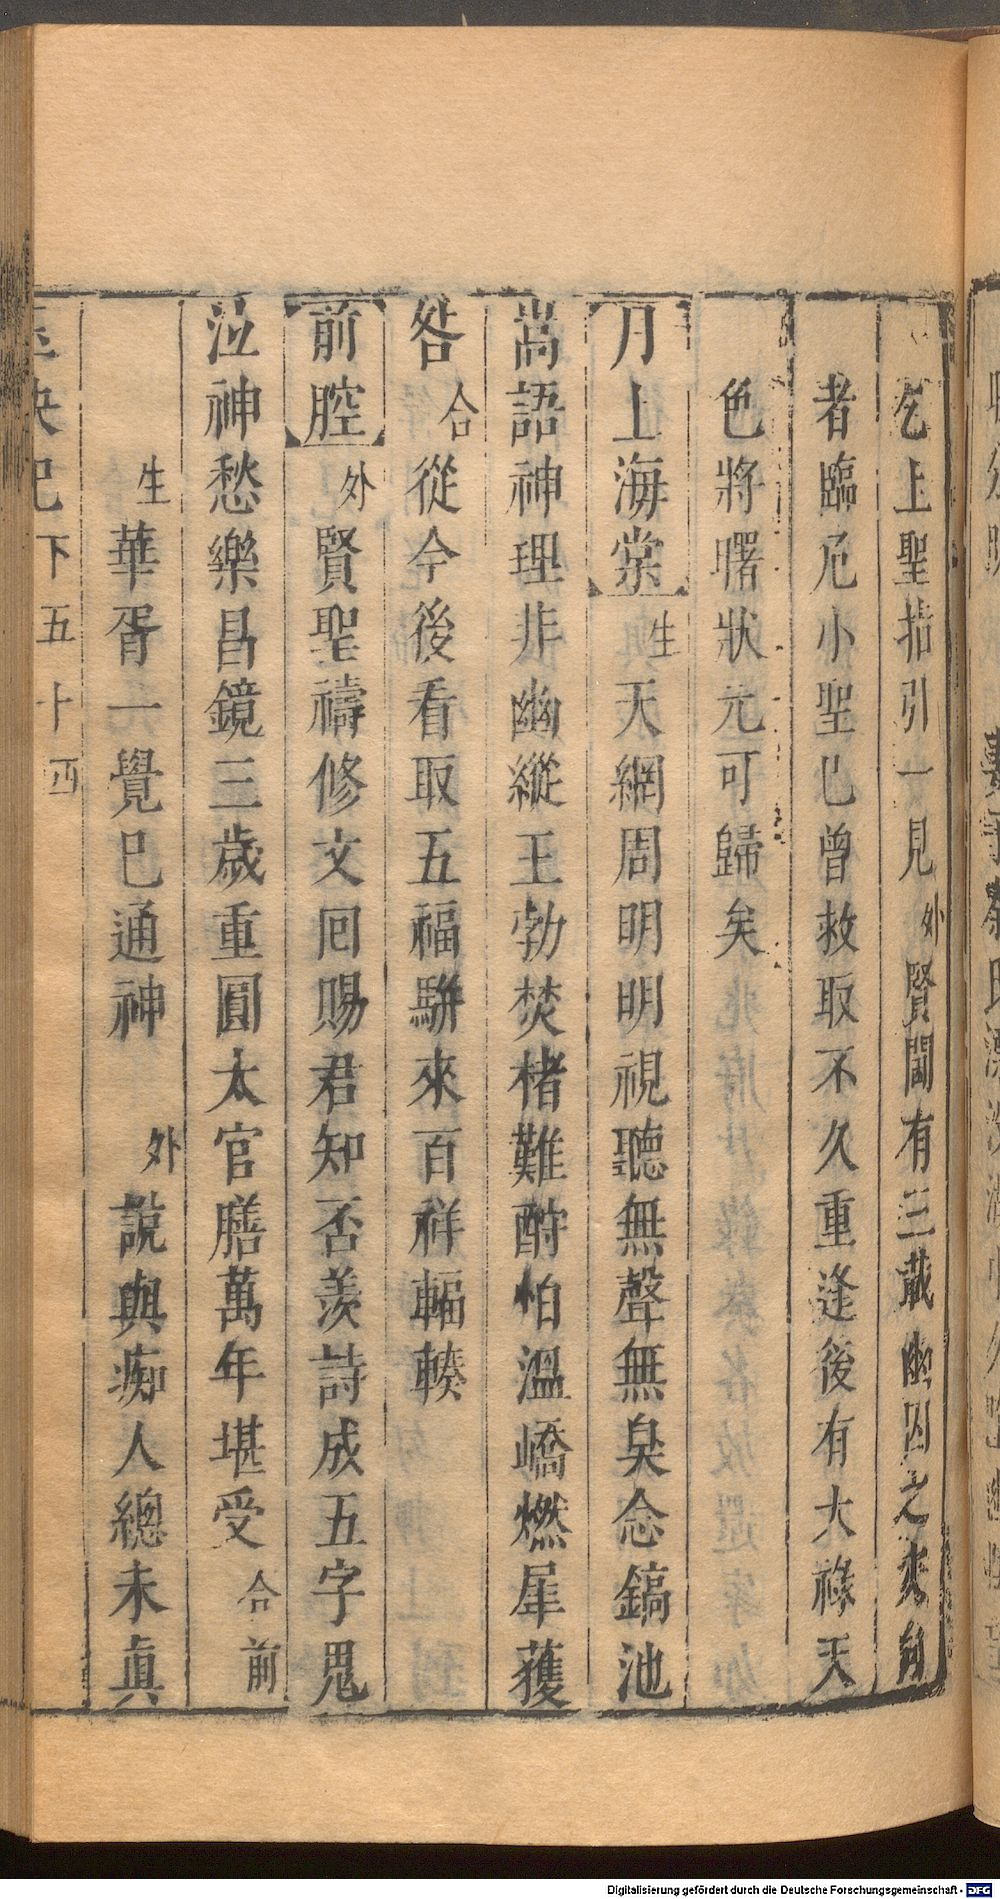 乞上聖指引一見外賢閫有三歲幽囚之
者臨厄小聖已曾救取不久重逢後有大祿天
色將曙狀元可歸矣
月上海棠生天網周明明視聽無聲無臭念鎬池
嵩語神理非幽縱王勃焚楮難酧怕溫嶠燃犀獲
咎合從今後看取五福駢來百祥輻輳
前腔外賢聖禱修文囘賜君知否羨詩成五字鬼
泣神愁樂昌鏡三歲重圓太官膳萬年堪受合前
生華胥一覺已通神 外說與痴人總未眞
玉玦記下五十四
Digitalisierung gefördert durch die Deutsche Forschungsgemeinschaft - DFG